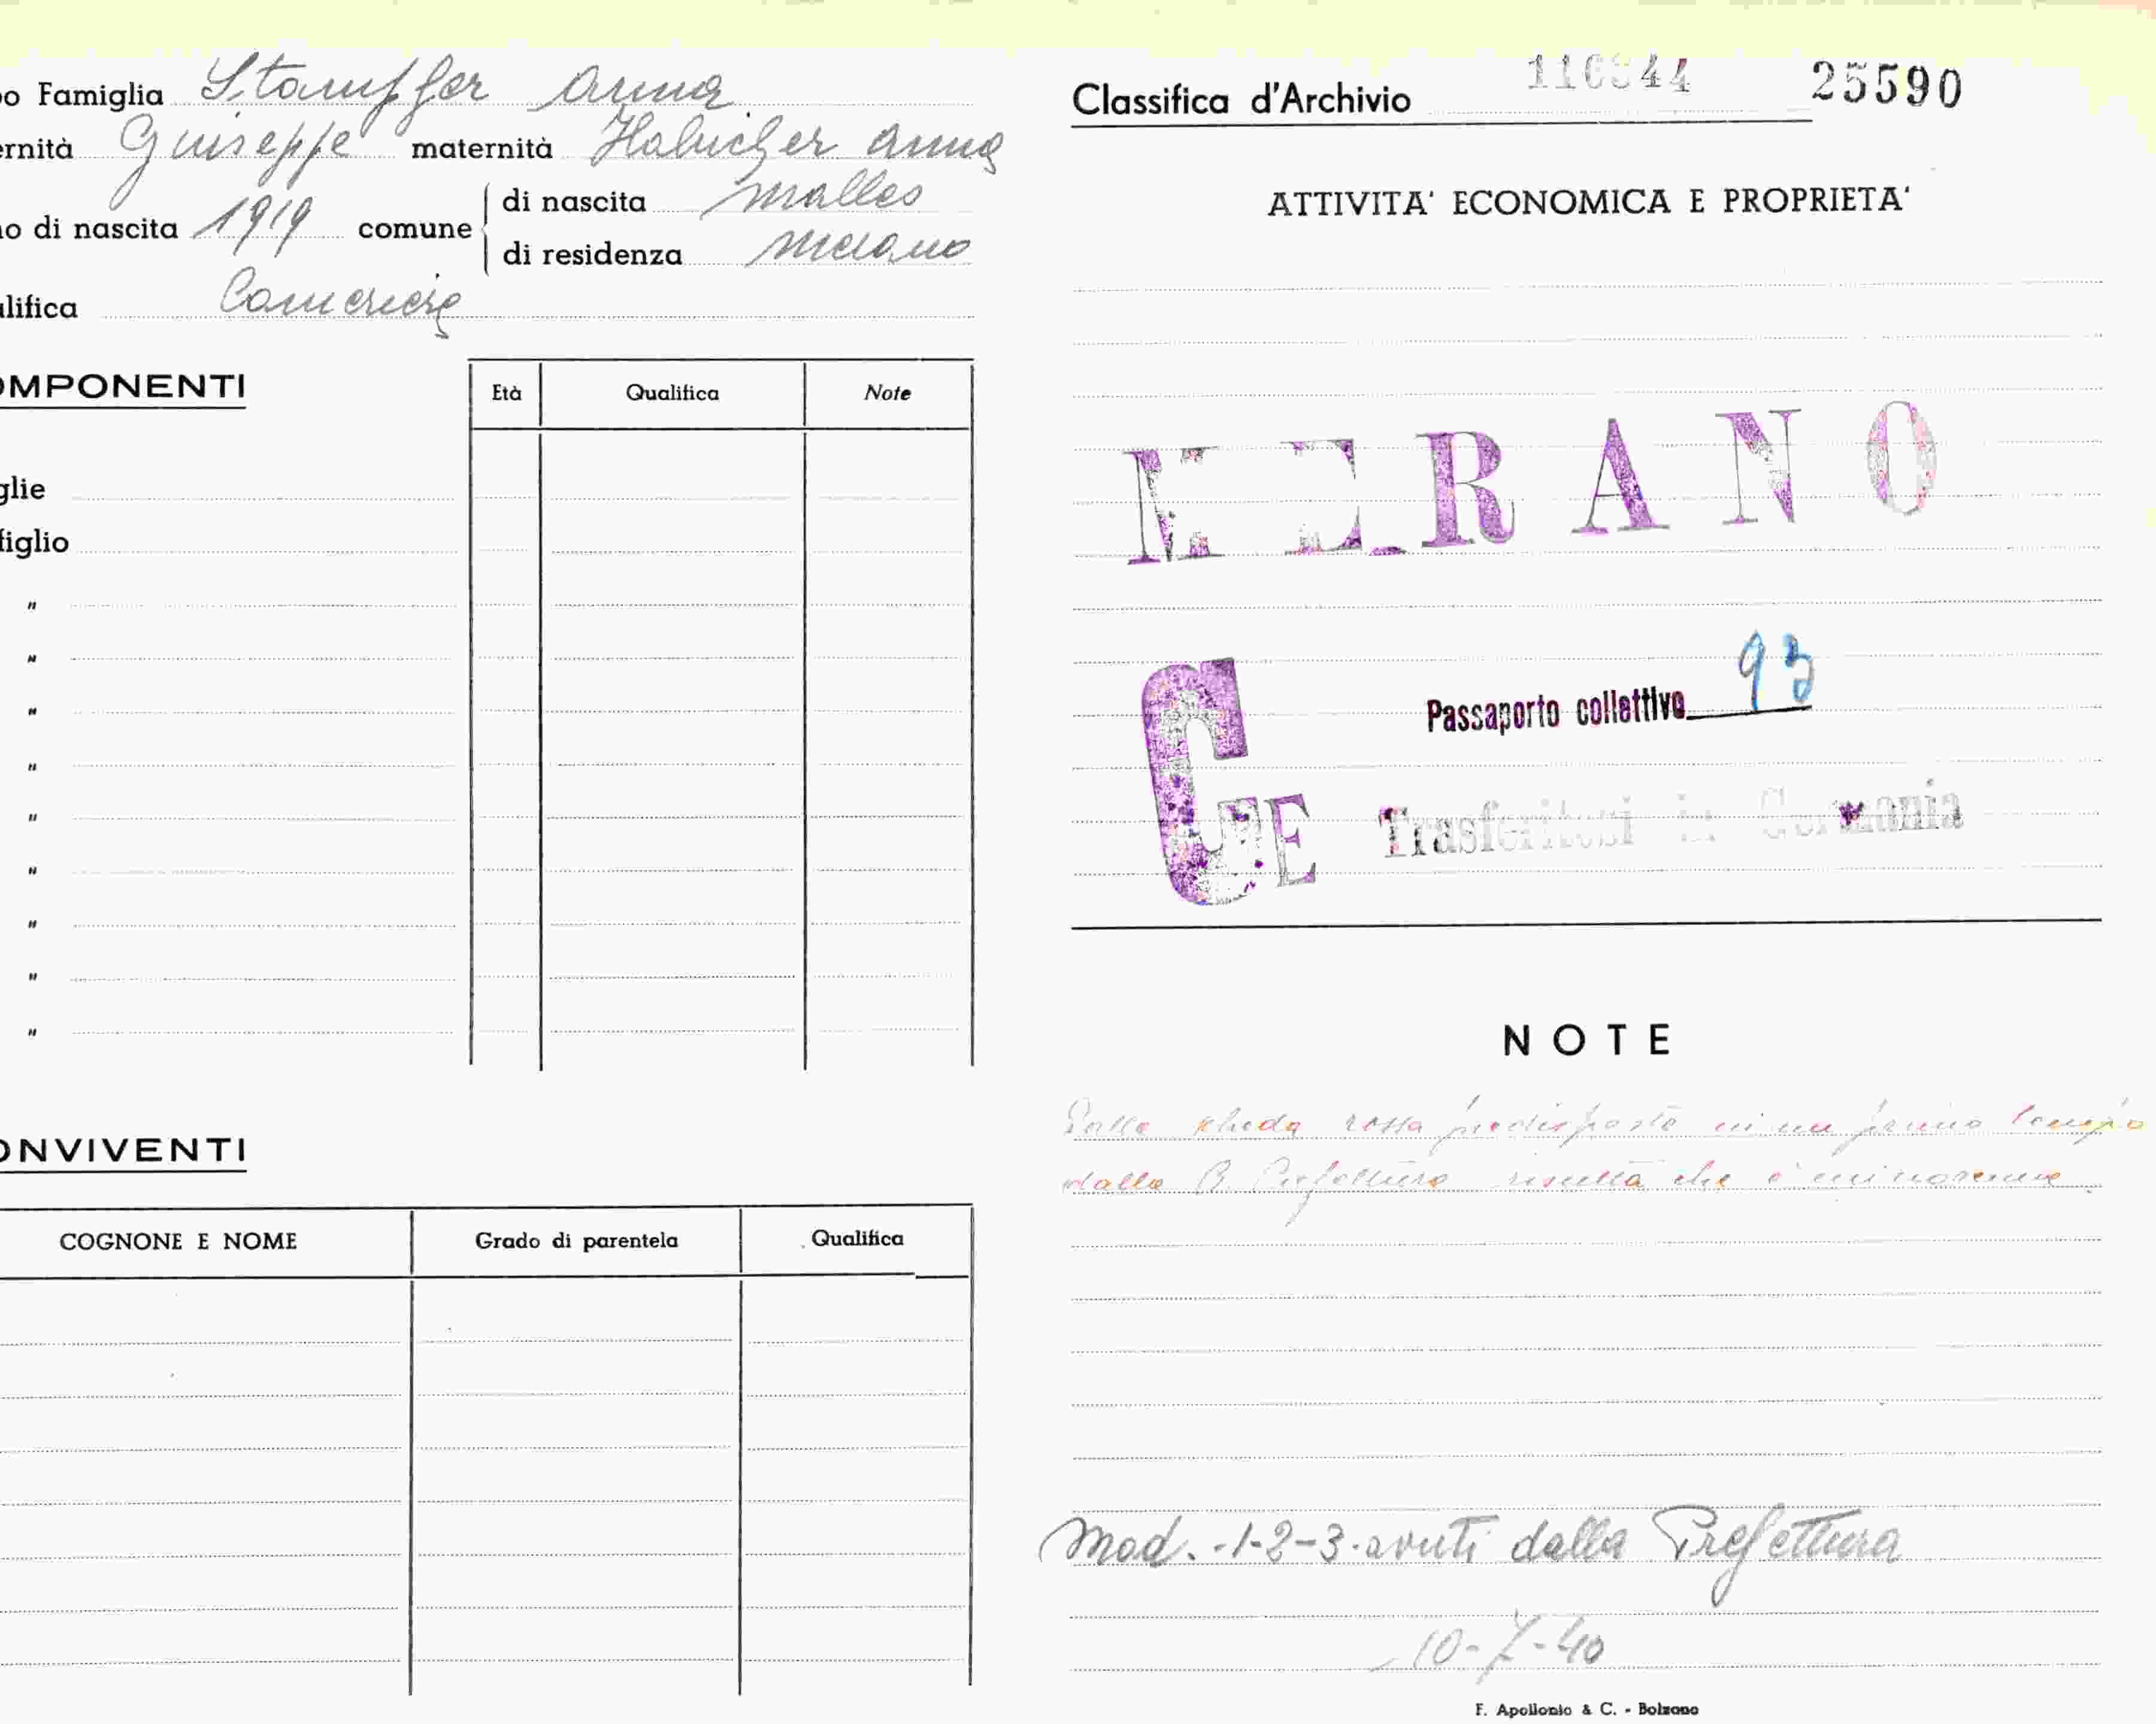 o Famiglia Stampfer Anna
ernità Guiseppe maternità Habicher Anna
o di nascita 1919 comune di nascita Malles
di residenza Merano
lifica Cameriera
OMPONENTI
Età Qualifica Note
glie
figlio
"
"
"
"
"
"
"
"
"
ONVIVENTI
COGNONE E NOME Grado di parentela Qualifica
Classifica d'Archivio 25590
ATTIVITA' ECONOMICA E PROPRIETA'
MERANO
Passaporto collettivo 93
GE Trasferitosi in Germania
NOTE
Dalla scheda rossa predisposta in un primo tempo
dalla R. Prefettura risulta che è minorenne
Mod. -1-2-3 avuti dalla Prefettura
10-7-40
F. Apollonio & C. - Bolzano